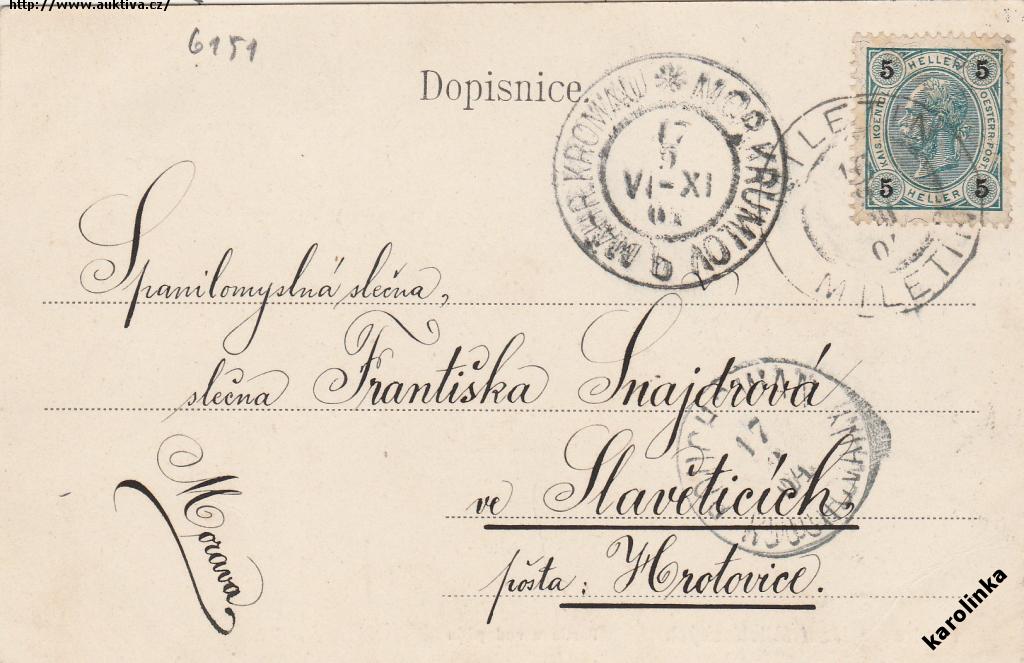 http://www.auktiva.cz/
6151
Dopisnice
MOR. KRUMLOV
MÄHR. KROMAU
17
5
VI-XI
5 HELLER 5
KAIS. KOENIGL. OESTERR. POST.
5 HELLER 5
MILETIN
MILETIN
Spanilomyslná slečna,
slečna Františka Šnajdrová
17
ve Slavěticích,
pošta: Hrotovice.
Morava
karolinka